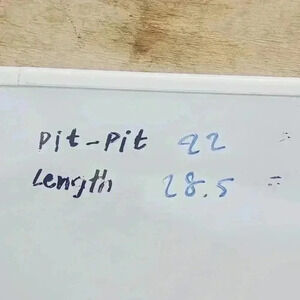 Pit-Pit 22 =
Length 28.5 =